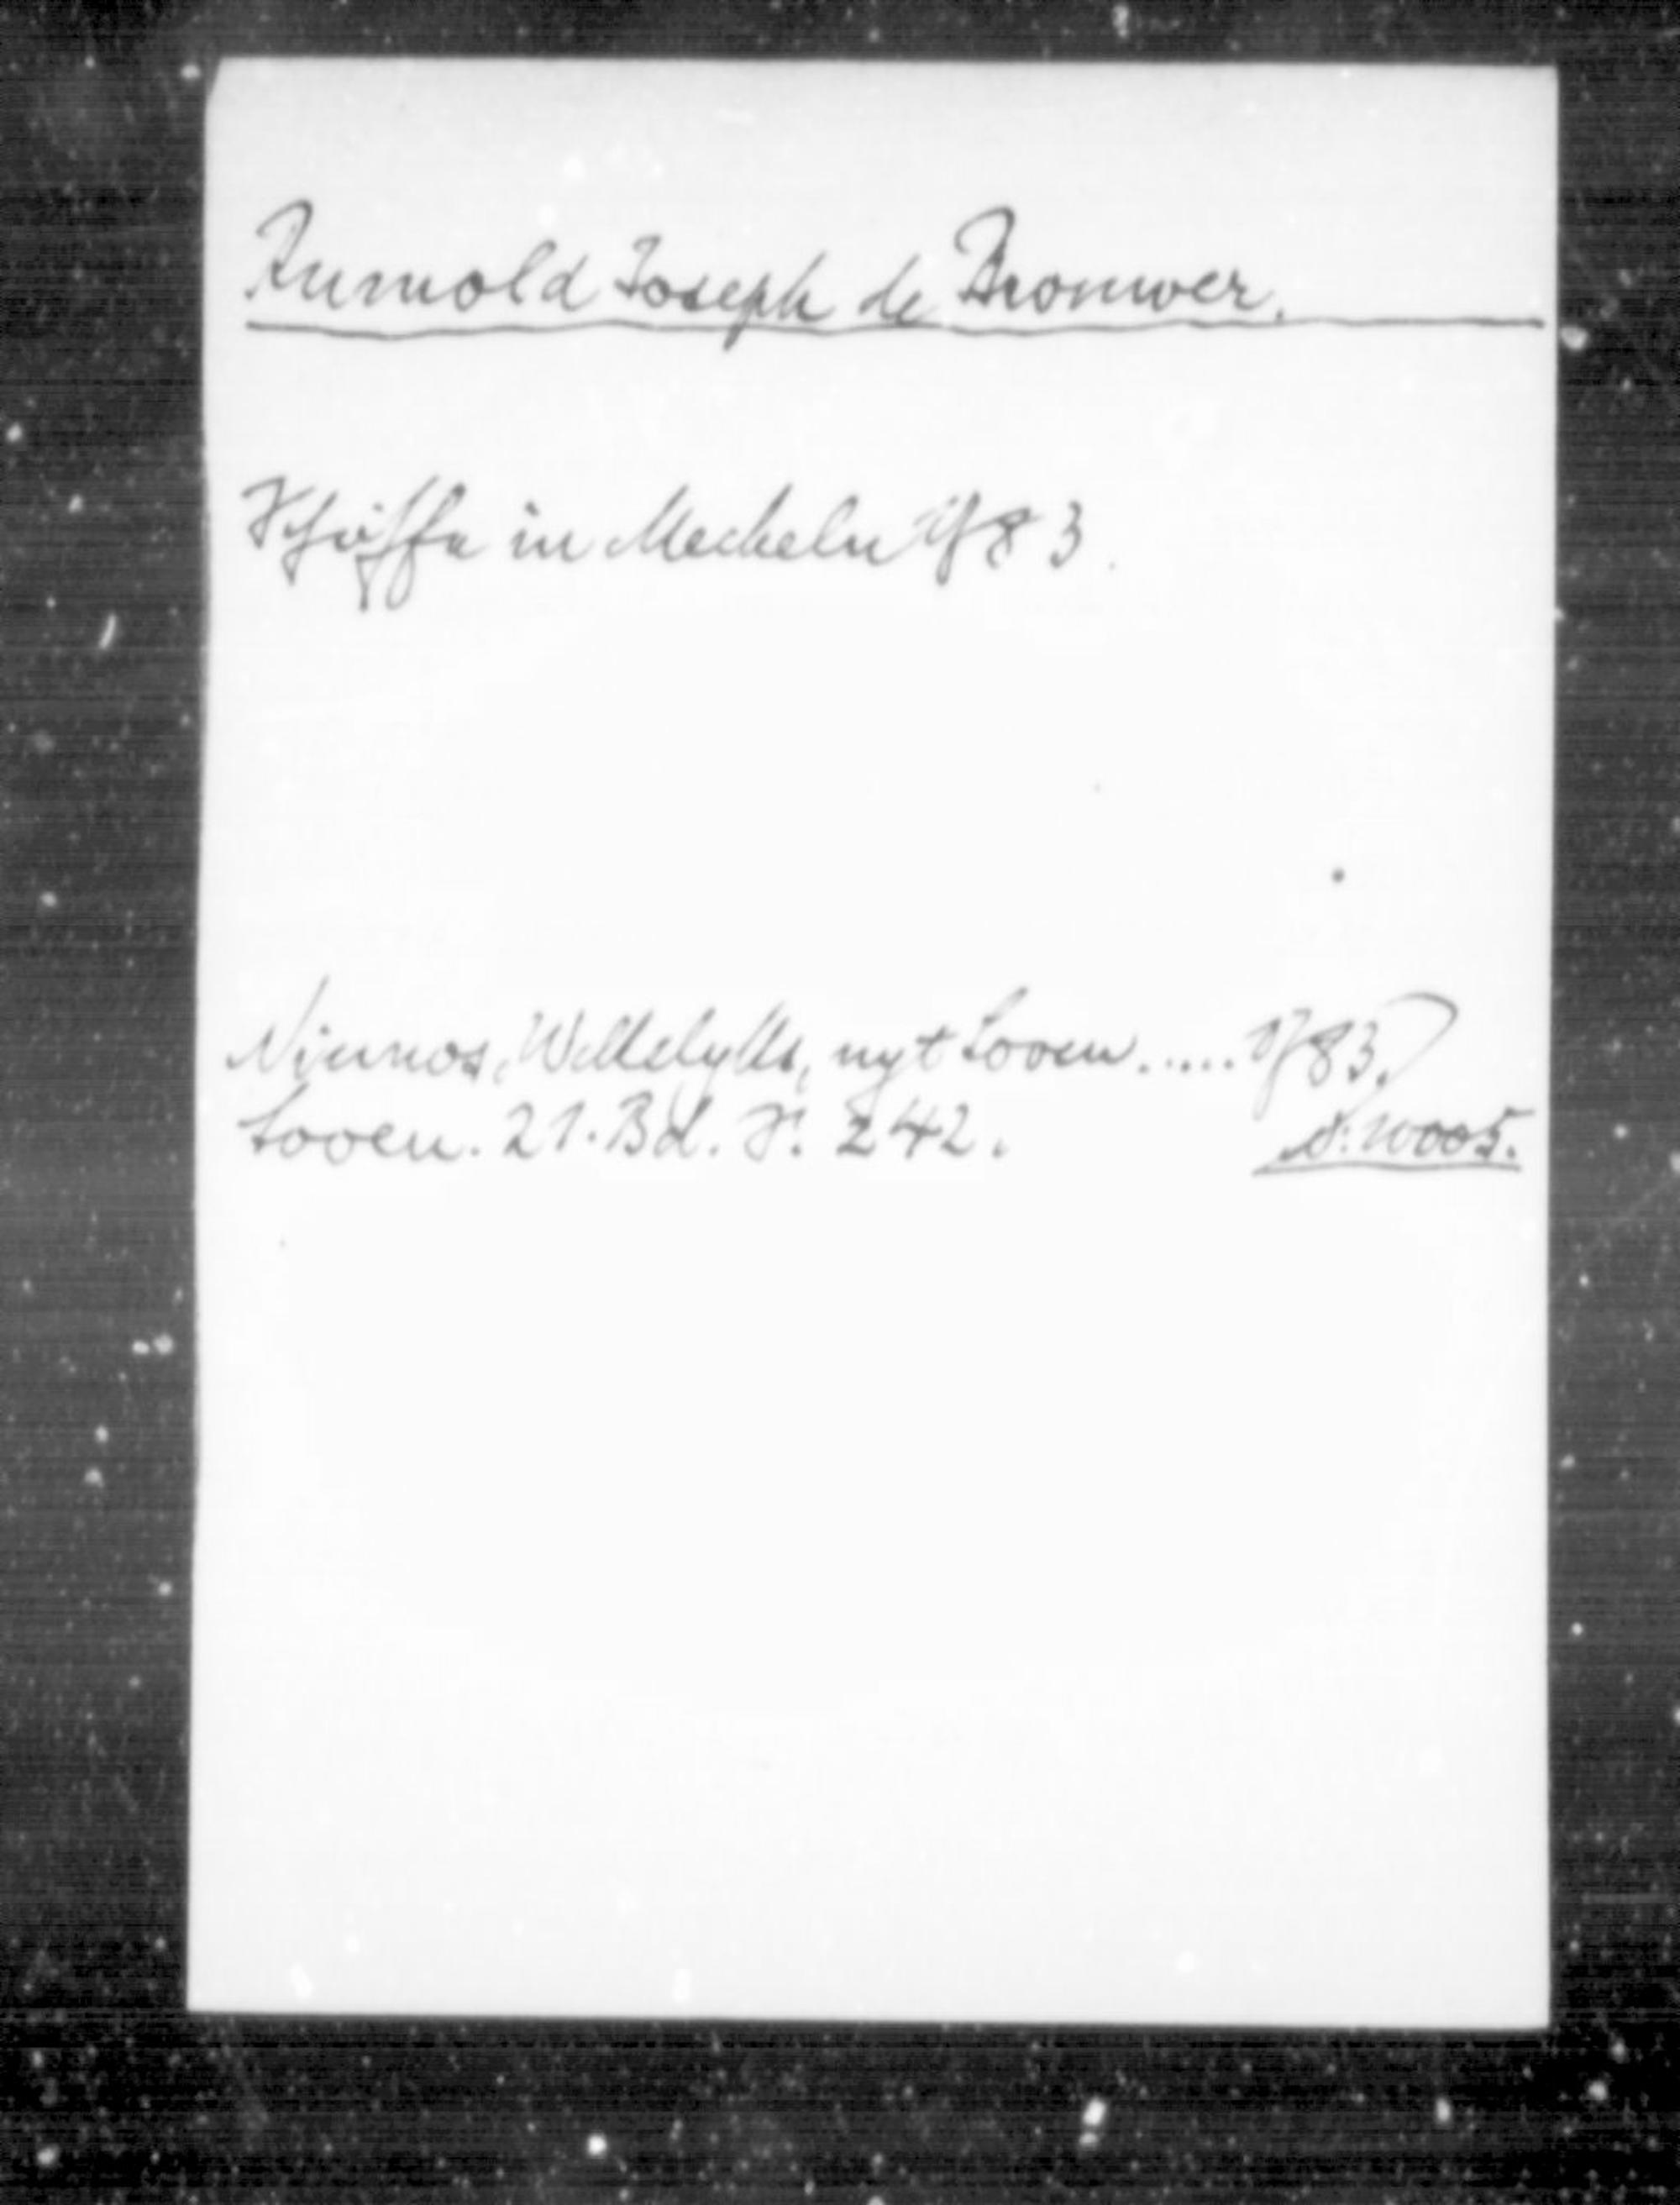 Rumold Joseph de Brouwer.
Schöffe in Mecheln 1783.
Niemos, Wekkelyks, uyt Loven ..... 1783.
Loven. 21. Bd. S. 242. d. W005.